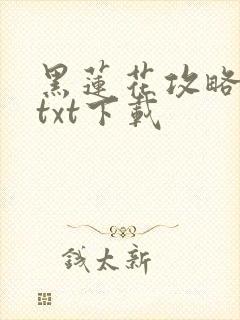 黑蓮花攻略
txt下載
錢太新